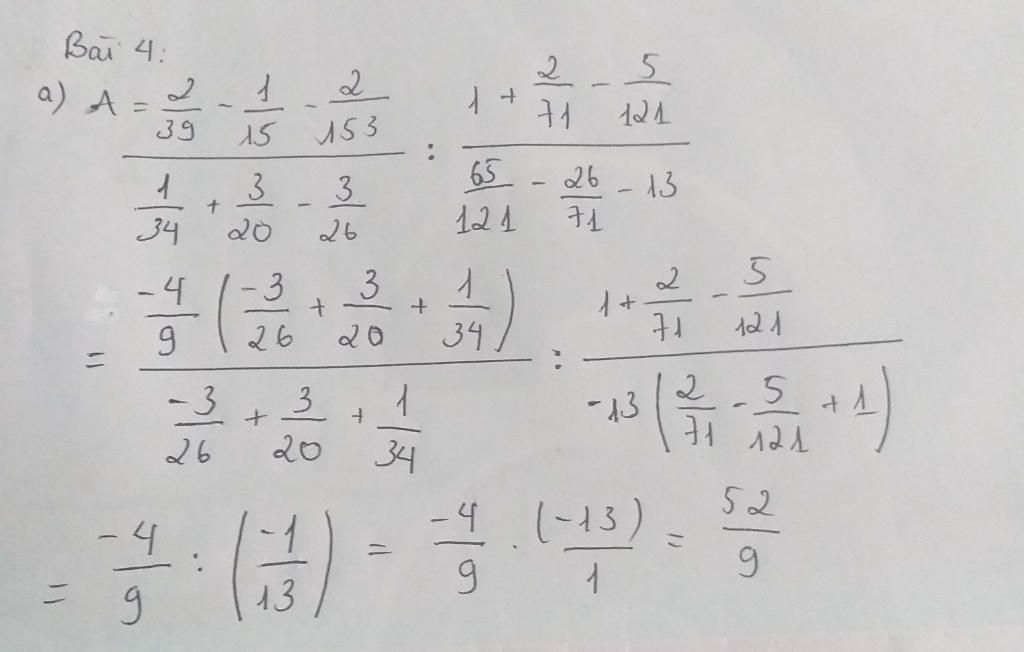 Bài 4:
a) A = \frac{\frac{2}{39} - \frac{1}{15} - \frac{2}{153}}{\frac{1}{34} + \frac{3}{20} - \frac{3}{26}} : \frac{1 + \frac{2}{71} - \frac{5}{121}}{\frac{65}{121} - \frac{26}{71} - 13}
= \frac{\frac{-4}{9} \left( \frac{-3}{26} + \frac{3}{20} + \frac{1}{34} \right)}{\frac{-3}{26} + \frac{3}{20} + \frac{1}{34}} : \frac{1 + \frac{2}{71} - \frac{5}{121}}{-13 \left( \frac{2}{71} - \frac{5}{121} + 1 \right)}
= \frac{-4}{9} : \left( \frac{-1}{13} \right) = \frac{-4}{9} . \frac{(-13)}{1} = \frac{52}{9}